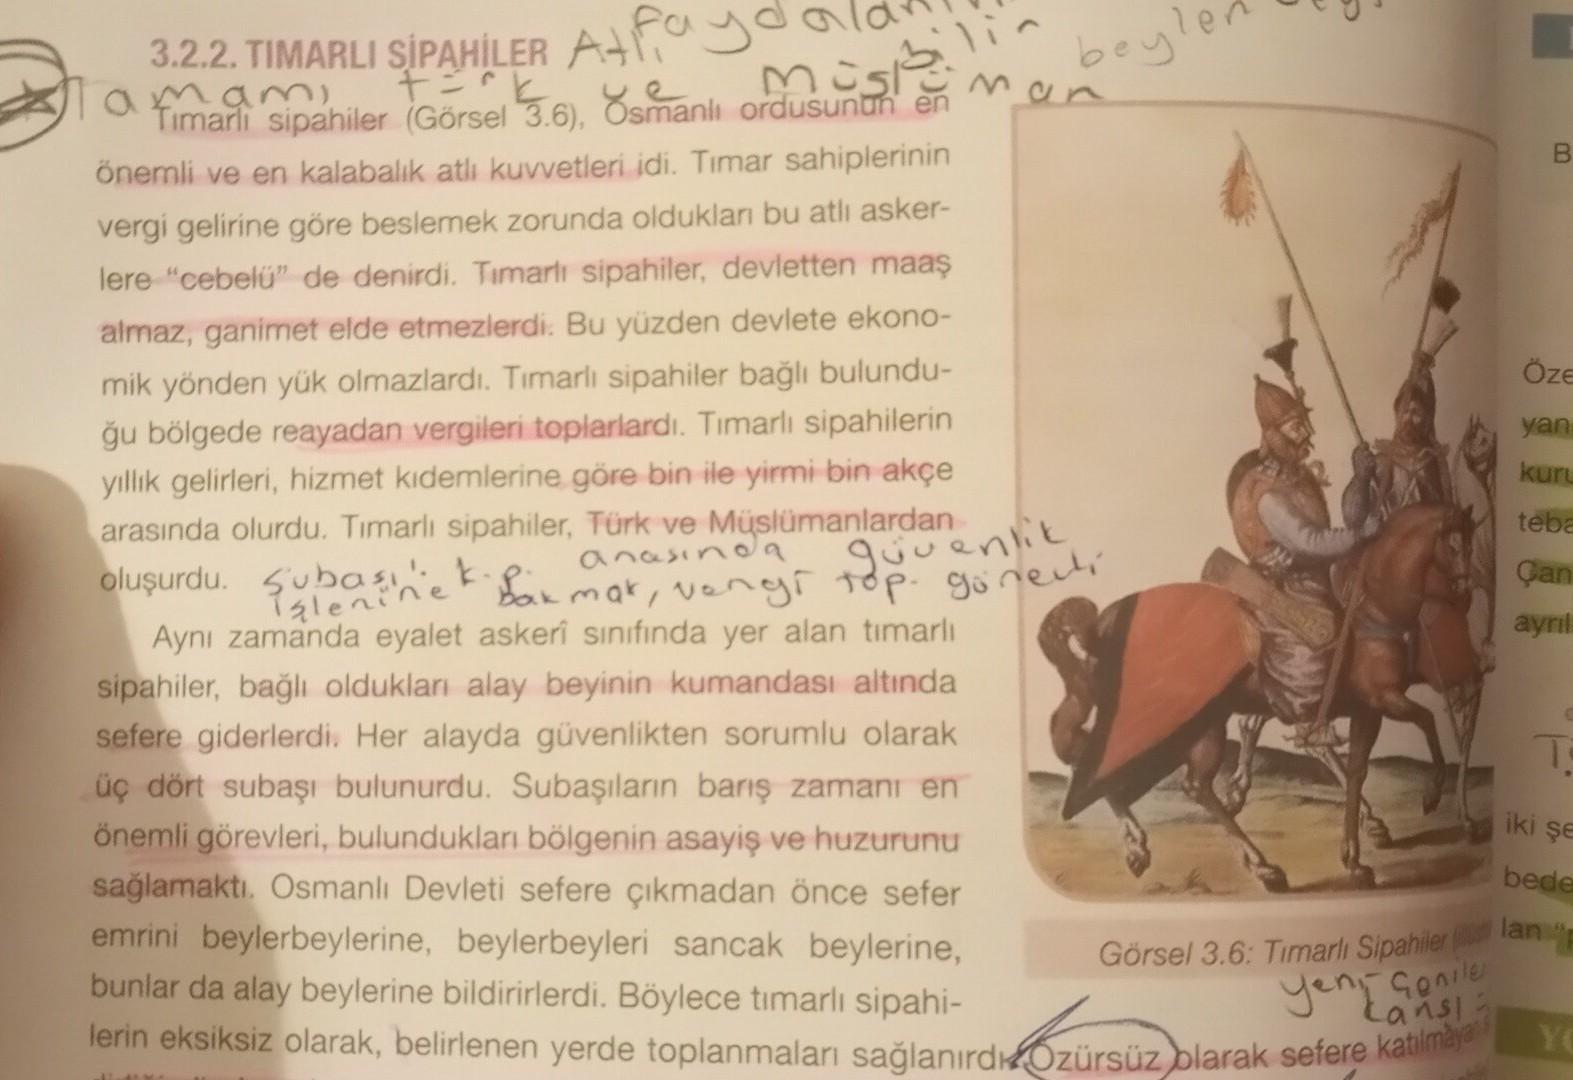 faydalan
3.2.2. TIMARLI SİPAHİLER Atlı,
bilir
beyler
Tamamı türk ve müslüman
Tımarlı sipahiler (Görsel 3.6), Osmanlı ordusunun en
önemli ve en kalabalık atlı kuvvetleri idi. Tımar sahiplerinin
vergi gelirine göre beslemek zorunda oldukları bu atlı asker-
lere “cebelü” de denirdi. Tımarlı sipahiler, devletten maaş
almaz, ganimet elde etmezlerdi. Bu yüzden devlete ekono-
mik yönden yük olmazlardı. Tımarlı sipahiler bağlı bulundu-
ğu bölgede reayadan vergileri toplarlardı. Tımarlı sipahilerin
yıllık gelirleri, hizmet kıdemlerine göre bin ile yirmi bin akçe
arasında olurdu. Tımarlı sipahiler, Türk ve Müslümanlardan
oluşurdu.
Subaşı: k.p. arasında güvenlik
işlerine bakmak, vergi top. görevli
Aynı zamanda eyalet askerî sınıfında yer alan tımarlı
sipahiler, bağlı oldukları alay beyinin kumandası altında
sefere giderlerdi. Her alayda güvenlikten sorumlu olarak
üç dört subaşı bulunurdu. Subaşıların barış zamanı en
önemli görevleri, bulundukları bölgenin asayiş ve huzurunu
sağlamaktı. Osmanlı Devleti sefere çıkmadan önce sefer
emrini beylerbeylerine, beylerbeyleri sancak beylerine,
bunlar da alay beylerine bildirirlerdi. Böylece tımarlı sipahi-
lerin eksiksiz olarak, belirlenen yerde toplanmaları sağlanırdı. Özürsüz olarak sefere katılmayan
Görsel 3.6: Tımarlı Sipahiler
yeniçeriler
karşı
B
Öze
yan
kuru
teba
Çan
ayrıl
iki şe
bede
lan “